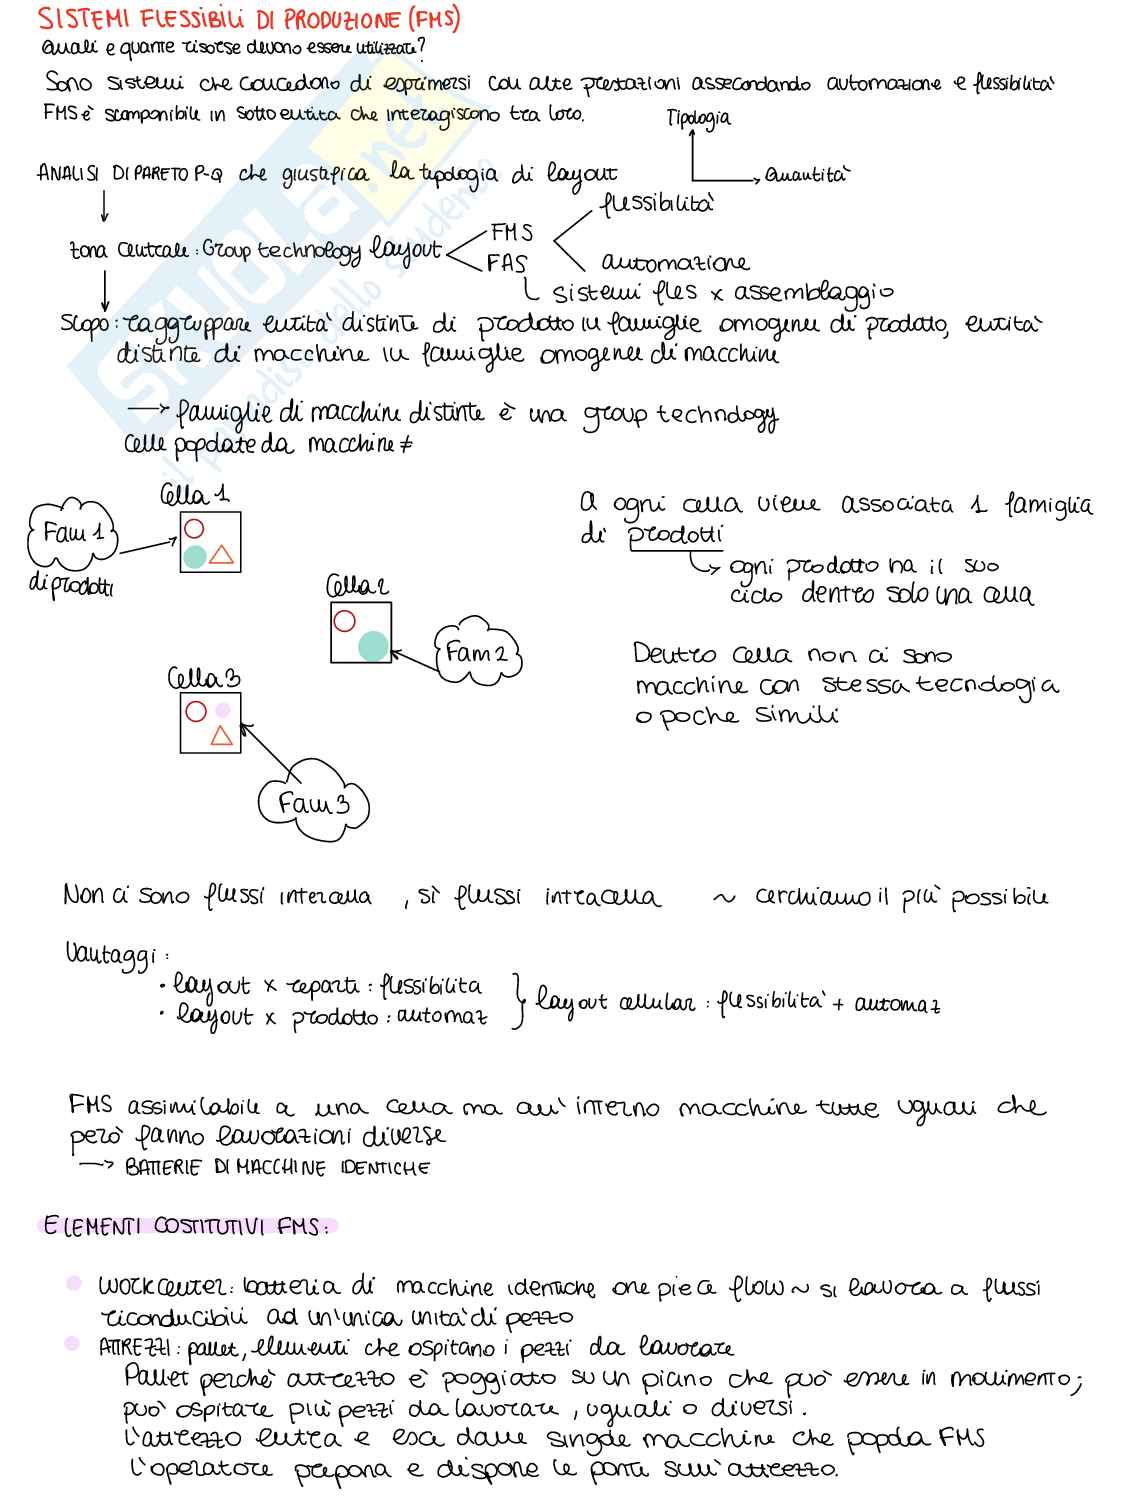 SISTEMI FLESSIBILI DI PRODUZIONE (FMS)
Quali e quante risorse devono essere utilizzate?
Sono sistemi che concedono di esprimersi con alte prestazioni assecondando automazione e flessibilità
FMS è scomponibile in sotto entità che interagiscono tra loro.
Tipologia
Quantità
ANALISI DI PARETO P-Q che giustifica la tipologia di layout
flessibilità
zona centrale: Group technology layout
FMS
FAS
automazione
sistemi fles x assemblaggio
Scopo: raggruppare entità distinte di prodotto in famiglie omogenee di prodotto, entità
distinte di macchine in famiglie omogenee di macchine
→ famiglie di macchine distinte è una group technology
celle popolate da macchine ≠
Cella 1
Fam 1
di prodotti
A ogni cella viene associata 1 famiglia
di prodotti
ogni prodotto ha il suo
ciclo dentro solo una cella
Cella 2
Fam 2
Dentro cella non ci sono
macchine con stessa tecnologia
o poche simili
Cella 3
Fam 3
Non ci sono flussi intercella, sì flussi intracella ~ cerchiamo il più possibile
Vantaggi:
• layout x reparti: flessibilita
• layout x prodotto: automaz
layout cellular: flessibilità + automaz
FMS assimilabile a una cella ma all'interno macchine tutte uguali che
però fanno lavorazioni diverse
→ BATTERIE DI MACCHINE IDENTICHE
ELEMENTI COSTITUTIVI FMS:
Workcenter: batteria di macchine identiche one piece flow ~ si lavora a flussi
riconducibili ad un'unica unità di pezzo
ATTREZZI: pallet, elementi che ospitano i pezzi da lavorare
Pallet perché attrezzo è poggiato su un piano che può essere in movimento;
può ospitare più pezzi da lavorare, uguali o diversi.
L'attrezzo entra e esce dalle singole macchine che popola FMS
L'operatore prepara e dispone le parti sull'attrezzo.
SKUOLA.net
il paradiso dello studente